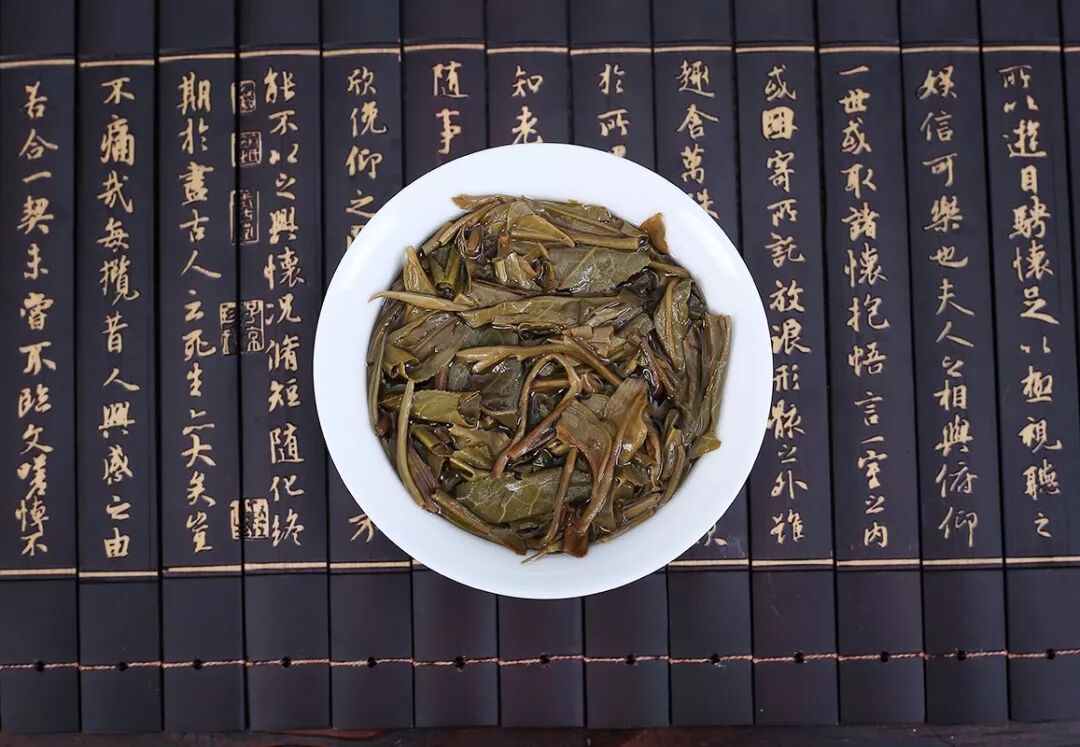 所以遊目騁懷足以極視聽之
娛信可樂也夫人之相與俯仰
一世或取諸懷抱悟言一室之內
或因寄所託放浪形骸之外雖
趣舍萬殊
於所
知老
隨事
欣俛仰之
能不以之興懷況脩短隨化終
期於盡古人云死生亦大矣豈
不痛哉每攬昔人興感之由
若合一契未嘗不臨文嗟悼不